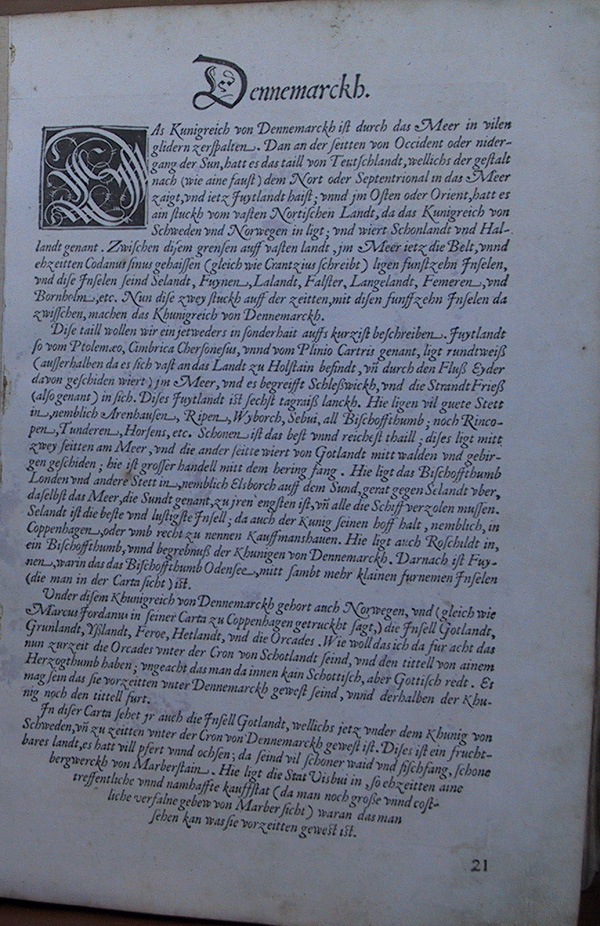 Dennemarckh.
DAs Kunigreich von Dennemarckh ist durch das Meer in vilen
glidern zerspalten. Dan an der seitten von Occident oder nider-
gang der Sun, hatt es das taill von Teutschlandt, wellichs der gestalt
nach (wie aine faust) dem Nort oder Septentrional in das Meer
zaigt, vnd ietz Juytlandt haist; vnnd jm Osten oder Orient, hatt es
ain stuckh vom vasten Nortischen Landt, da das Kunigreich von
Schweden vnd Norwegen in ligt; vnd wiert Schonlandt vnd Hal-
landt genant. Zwischen disem grensen auff vasten landt, jm Meer ietz die Belt, vnnd
ehzeitten Codanus sinus gehaissen (gleich wie Crantzius schreibt) ligen funfftzehn Jnselen,
vnd dise Jnselen seind Selandt, Fuynen, Lalandt, Falster, Langelandt, Femeren, vnd
Bornholm, etc. Nun dise zwey stuckh auff der zeitten, mit disen funffzehn Jnselen da
zwischen, machen das Khunigreich von Dennemarckh.
Dise taill wollen wir ein jetweders in sonderhait auffs kurzist beschreiben. Juytlandt
so vom Ptolemæo, Cimbrica Chersonesus, vnnd vom Plinio Cartris genant, ligt rundtweiß
(ausserhalben da es sich vast an das Landt zu Holstain befindt, vñ durch den Fluß Eyder
davon geschiden wiert) jm Meer, vnd es begreifft Schleßwickh, vnd die Strandt Frieß
(also genant) in sich. Dises Juytlandt ist sechst tagraiß lanckh. Hie ligen vil guete Stett
in, nemblich Arenhausen, Ripen, Wyborch, Sebui, all Bischoffthumb; noch Rinco-
pen, Tunderen, Horsens, etc. Schonen ist das best vnnd reichest thaill; dises ligt mitt
zwey seitten am Meer, vnd die ander seitte wiert von Gotlandt mitt walden vnd gebir-
gen geschiden; hie ist grosser handell mitt dem hering fang. Hie ligt das Bischoffthumb
Londen vnd andere Stett in, nemblich Elsborch auff dem Sund, gerat gegen Selandt vber,
daselbst das Meer, die Sundt genant, zu jren engsten ist, vñ alle die Schiff verzolen mussen.
Selandt ist die beste vnd lustigste Jnsell; da auch der Kunig seinen hoff halt, nemblich, in
Coppenhagen, oder vmb recht zu nennen Kauffmanshauen. Hie ligt auch Roschildt in,
ein Bischoffthumb, vnnd begrebnuß der Khunigen von Dennemarckh. Darnach ist Fuy-
nen, warin das das Bischoffthumb Odensee, mitt sambt mehr klainen furnemen Jnselen
(die man in der Carta sicht) ist.
Under disem Khunigreich von Dennemarckh gehort auch Norwegen, vnd (gleich wie
Marcus Jordanus in seiner Carta zu Coppenhagen getruckht sagt,) die Jnsell Gotlandt,
Grunlandt, Yßlandt, Feroe, Hetlandt, vnd die Orcades. Wie woll das ich da fur acht das
nun zurzeit die Orcades vnter der Cron von Schotlandt seind, vnd den tittell von ainem
Herzogthumb haben; vngeacht das man da innen kain Schottisch, aber Gottisch redt. Et
mag sein das sie vorzeitten vnter Dennemarckh gewest seind, vnnd derhalben der Khu-
nig noch den tittell furt.
Jn diser Carta sehet jr auch die Jnsell Gotlandt, wellichs jetz vnder dem Khunig von
Schweden, vñ zu zeitten vnter der Cron von Dennemarckh gewest ist. Dises ist ein frucht-
bares landt, es hatt vill pfert vnnd ochsen; da seind vil schoner waid vnd fischfang, schone
bergwerckh von Marberstain. Hie ligt die Stat Visbui in, so ehzeitten aine
treffentliche vnnd namhaffte kauffstat (da man noch große vnnd cost-
liche verfalne gebew von Marber sicht) waran das man
sehen kan was sie vorzeitten gewest ist.
21